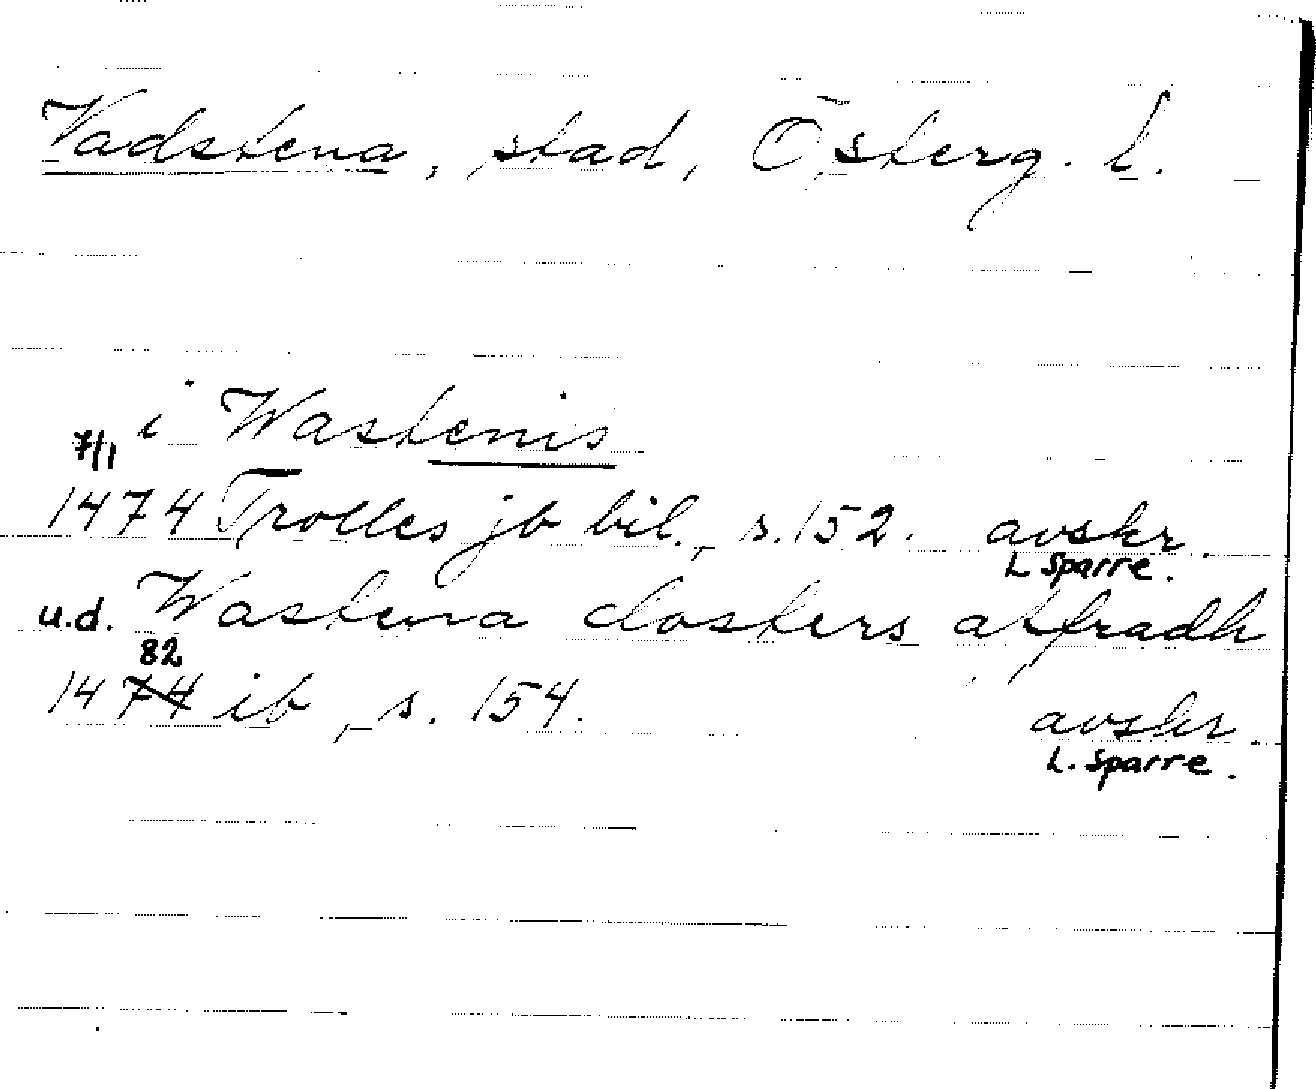 Vadstena, stad, Österg. l.
i Wastenis
7/1
1474 Trolles jb bil., s. 152. avskr.
L Sparre.
u.d. Wastena closters affradh
82
1474 ib, s. 154. avskr.
L. Sparre.